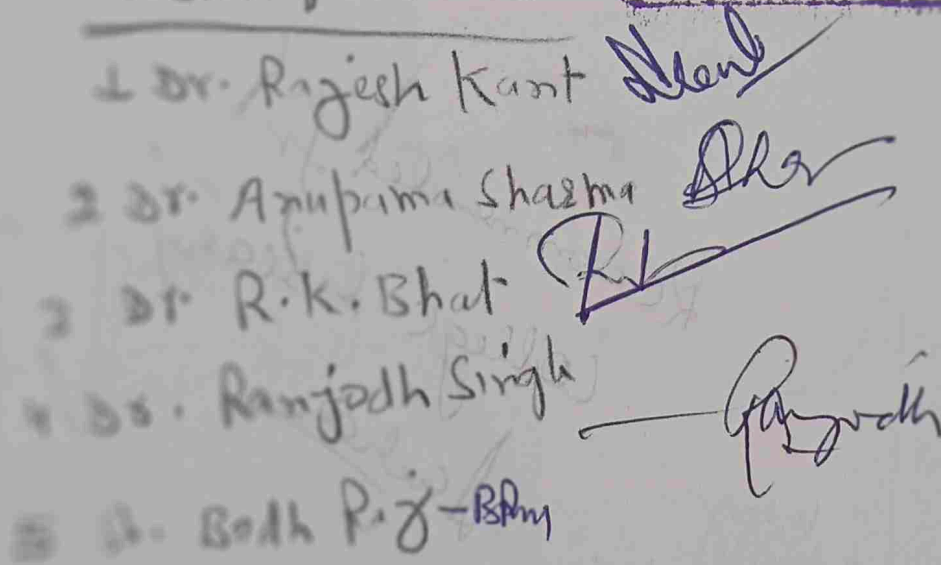 1 Dr. Rajesh Kant
2 Dr. Anupama Sharma
3 Dr R.K. Bhat
4 Dr. Ranjodh Singh Ranjodh
5 Sh. Bodh Raj -